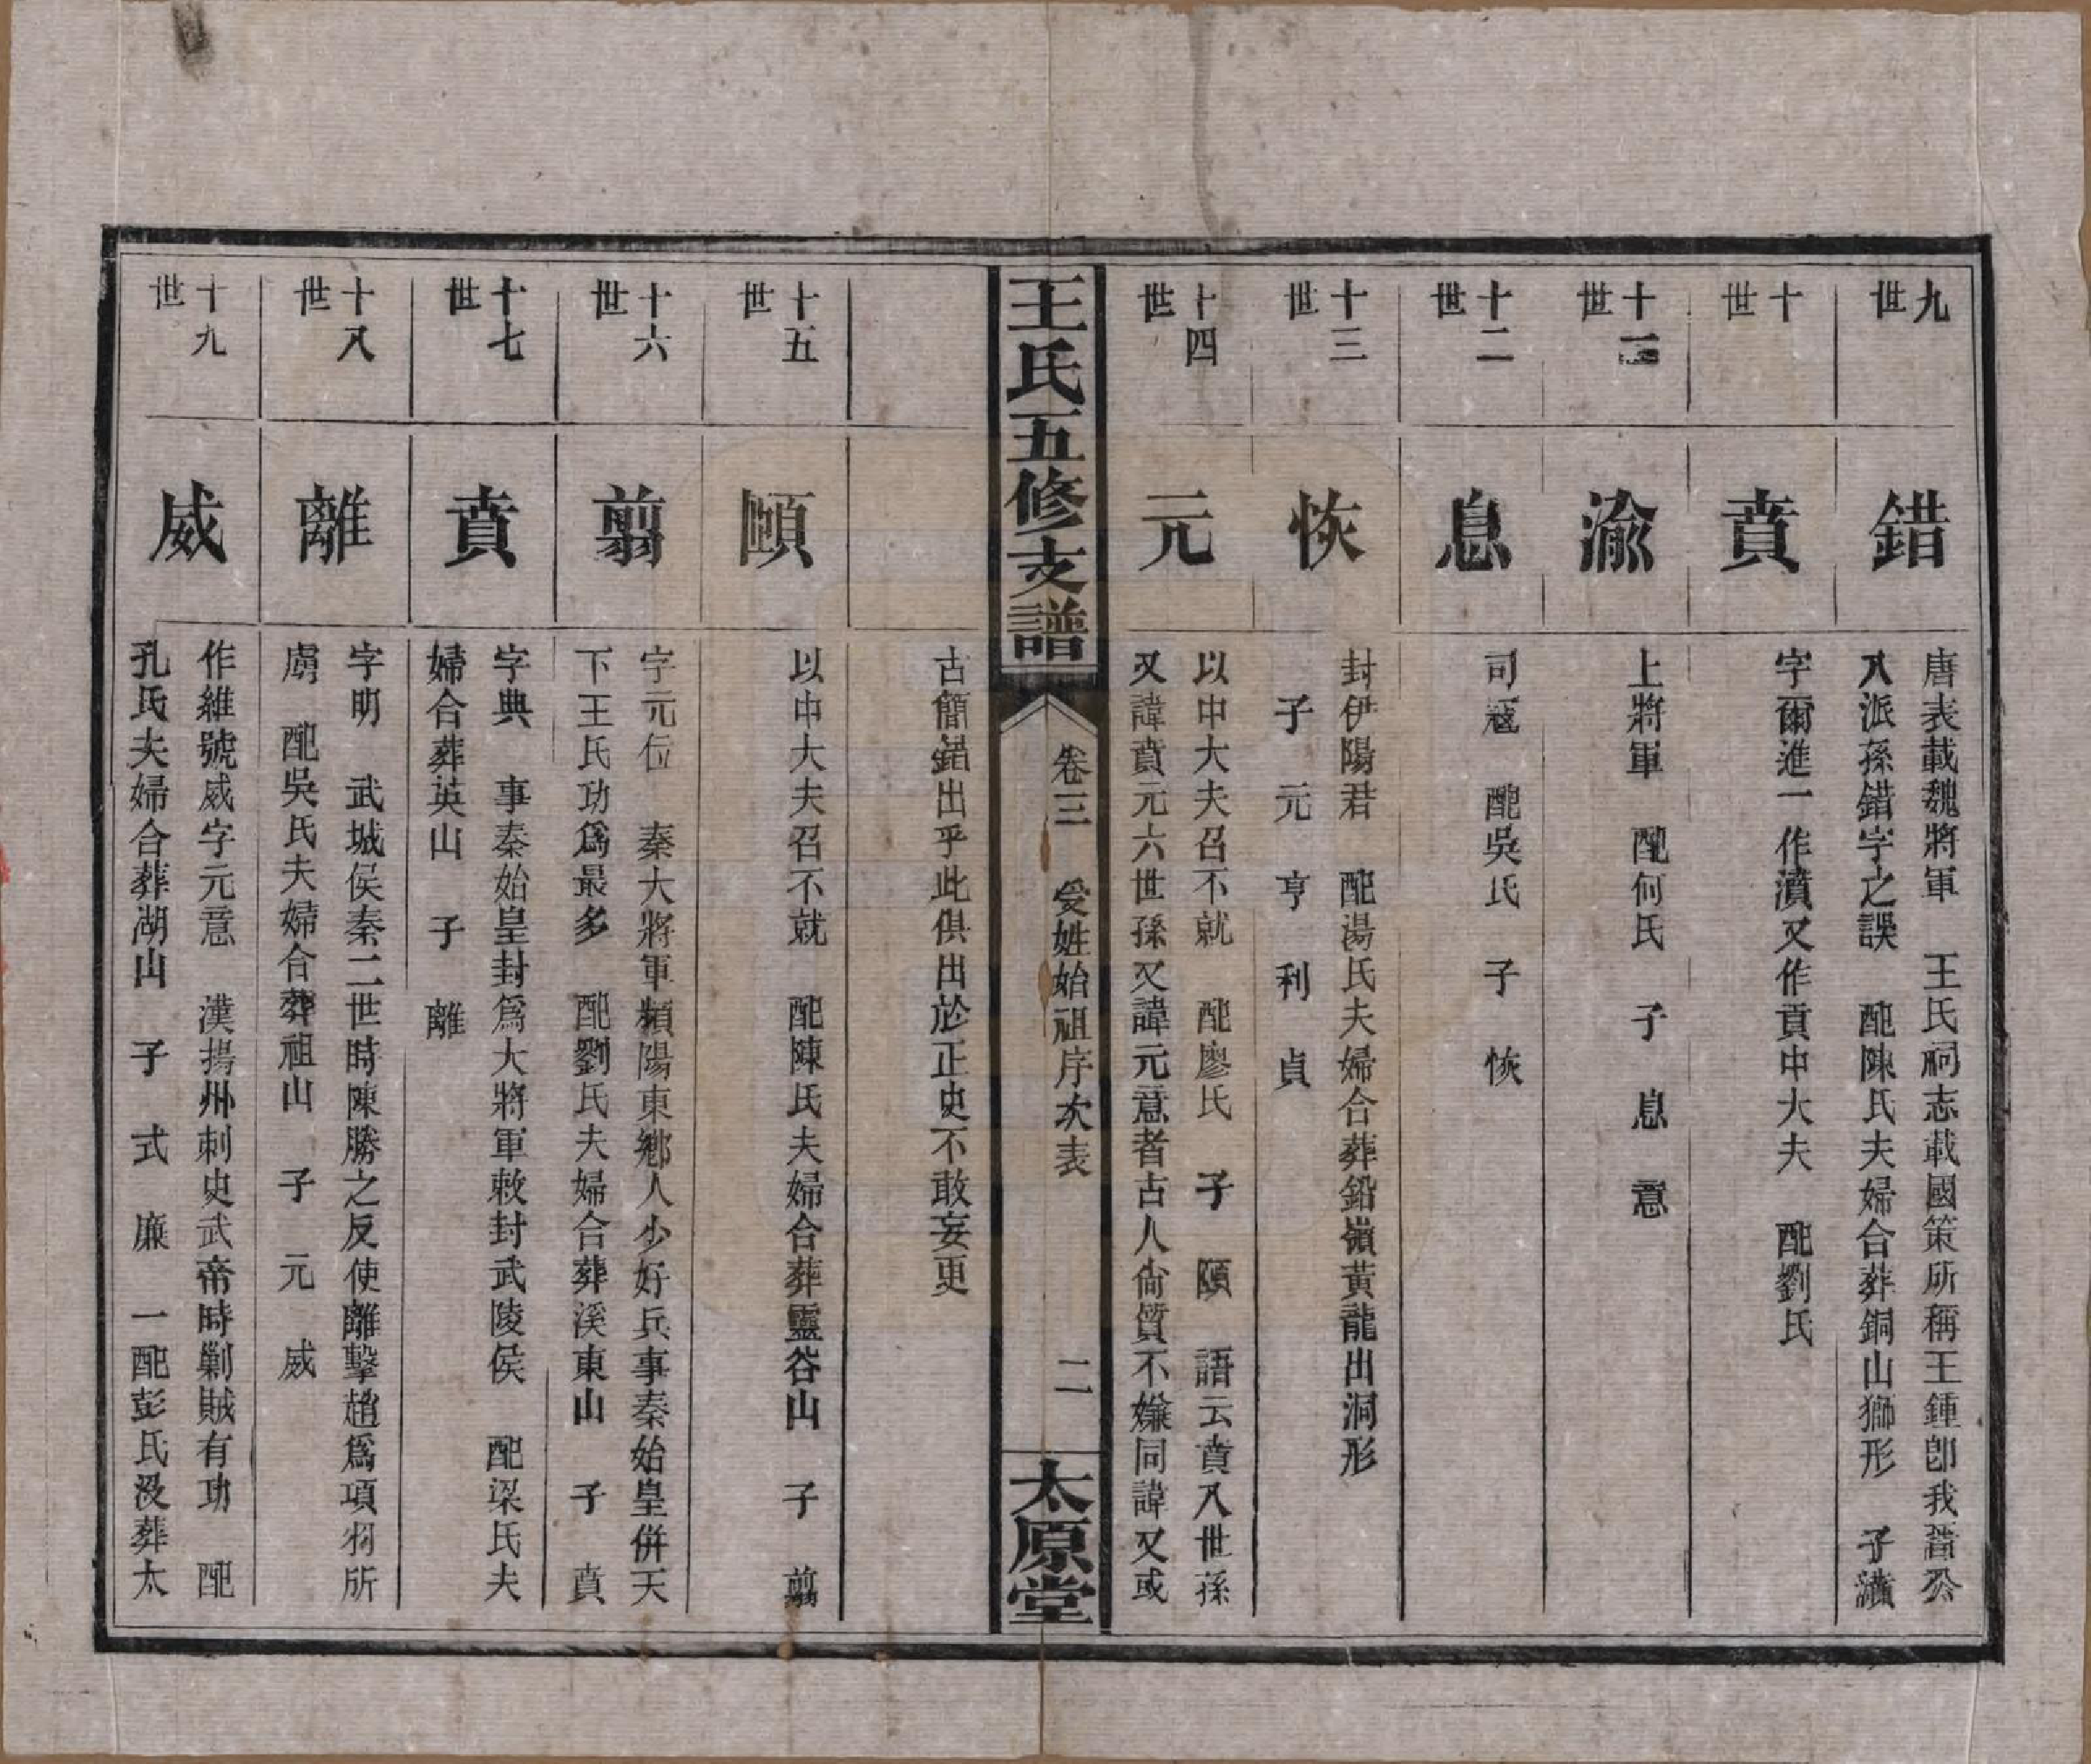 九世
錯
唐表載魏將軍　王氏祠志載國策所稱王鍾卽我晉公
八派孫錯字之誤　配陳氏夫婦合葬銅山獅形　子濆
十世
賁
字爾進一作濆又作賁中大夫　配劉氏
十一世
渝
上將軍　配何氏　子　息　意
十二世
息
司寇　配吳氏　子　恢
十三世
恢
封伊陽君　配湯氏夫婦合葬鉛嶺黃龍出洞形
子　元　亨　利　貞
十四世
元
以中大夫召不就　配廖氏　子　頤　語云賁八世孫
又諱賁元六世孫又諱元意者古人尙質不嫌同諱又或
王氏五修支譜
卷三　受姓始祖序次表
二
太原堂
古簡錯出乎此俱出於正史不敢妄更
十五世
頤
以中大夫召不就　配陳氏夫婦合葬靈谷山　子　翦
十六世
翦
字元位　秦大將軍頻陽東鄉人少好兵事秦始皇併天
下王氏功爲最多　配劉氏夫婦合葬溪東山　子　賁
十七世
賁
字典　事秦始皇封爲大將軍敕封武陵侯　配梁氏夫
婦合葬英山　子　離
十八世
離
字明　武城侯秦二世時陳勝之反使離擊趙爲項羽所
虜　配吳氏夫婦合葬祖山　子　元　威
十九世
威
作維號威字元意　漢揚州刺史武帝時剿賊有功　配
孔氏夫婦合葬湖山　子　式　廉　一配彭氏没葬太